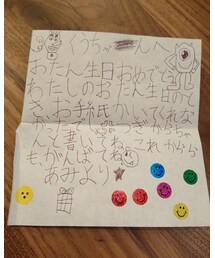 くうちゃんへ
おたん生日おめでとう
わたしのおたん生日のと
き、お手紙かいてくれな
かった つぎからちゃ
んと書いてね これから
もがんばてね
あみより